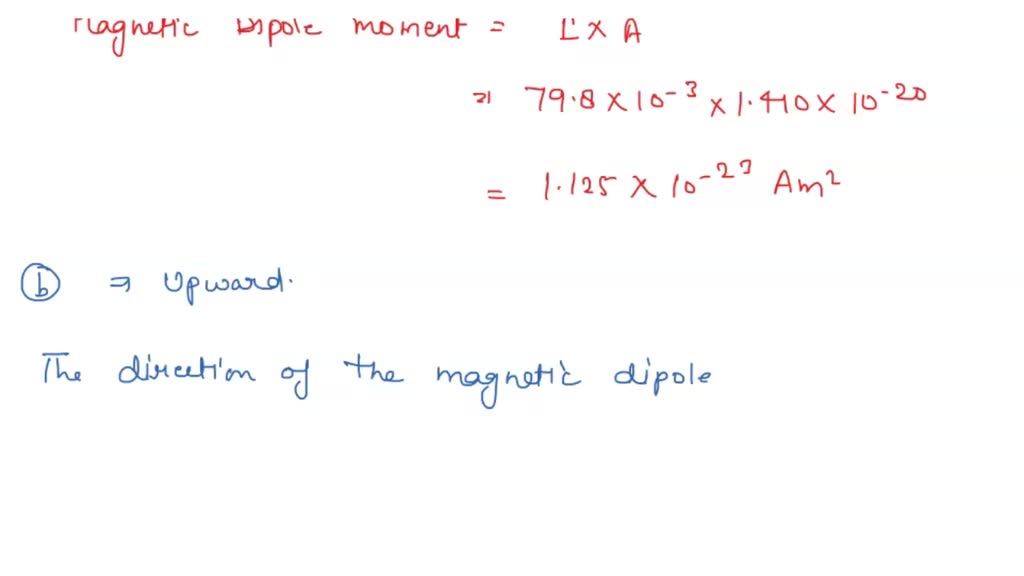 Magnetic Dipole moment = i × A
⇒ 79.8 × 10⁻³ × 1.410 × 10⁻²⁰
= 1.125 × 10⁻²³ Am²
ⓑ ⇒ Upward.
The direction of the magnetic dipole